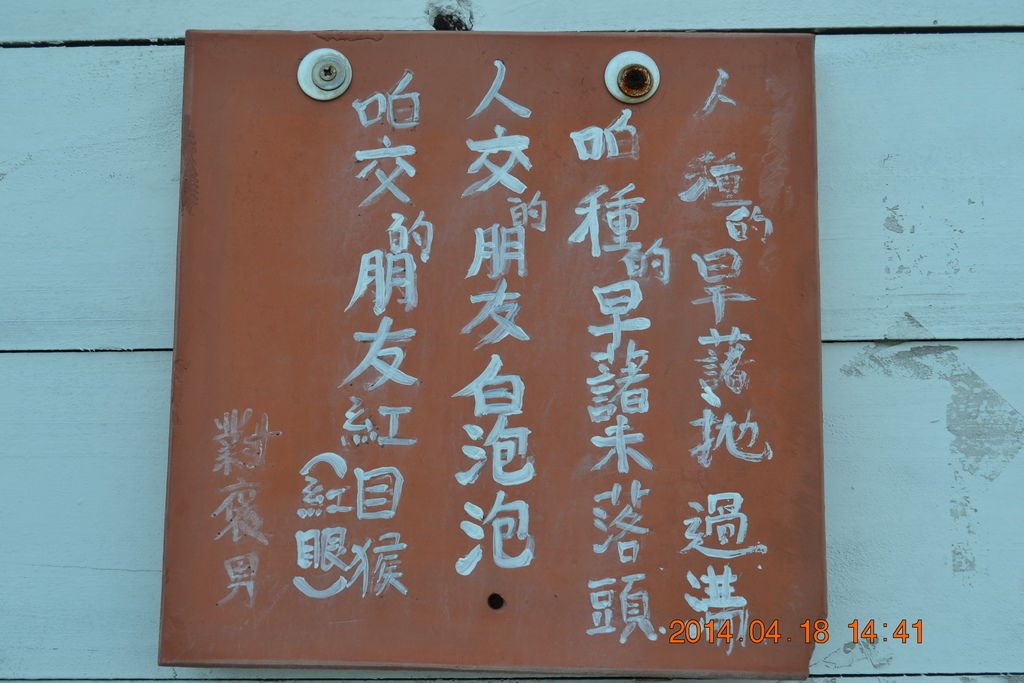 人種的早藷拋過溝
咱種的早藷未落頭
人交的朋友白泡泡
咱交的朋友紅目猴
(紅眼)
對褒男
2014.04.18 14:41